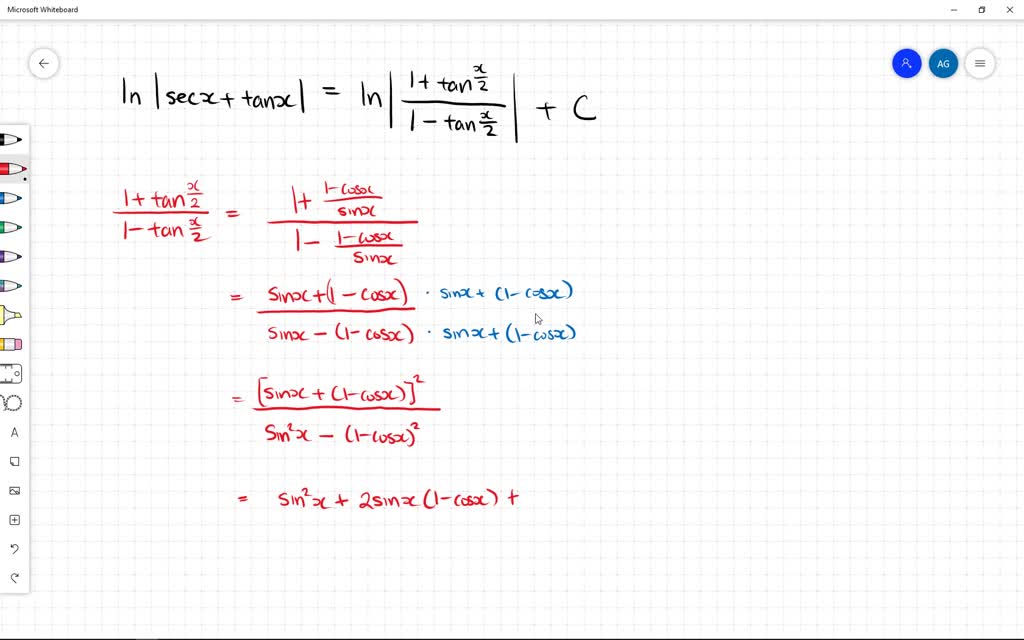 Microsoft Whiteboard
AG
ln |secx + tanx| = ln |(1 + tan x/2)/(1 - tan x/2)| + C
(1 + tan x/2)/(1 - tan x/2) = (1 + (1-cosx)/sinx)/(1 - (1-cosx)/sinx)
= (sinx + (1 - cosx))/(sinx - (1 - cosx)) · (sinx + (1 - cosx))/(sinx + (1 - cosx))
= [sinx + (1-cosx)]²/(sin²x - (1-cosx)²)
= sin²x + 2sinx(1-cosx) +
A